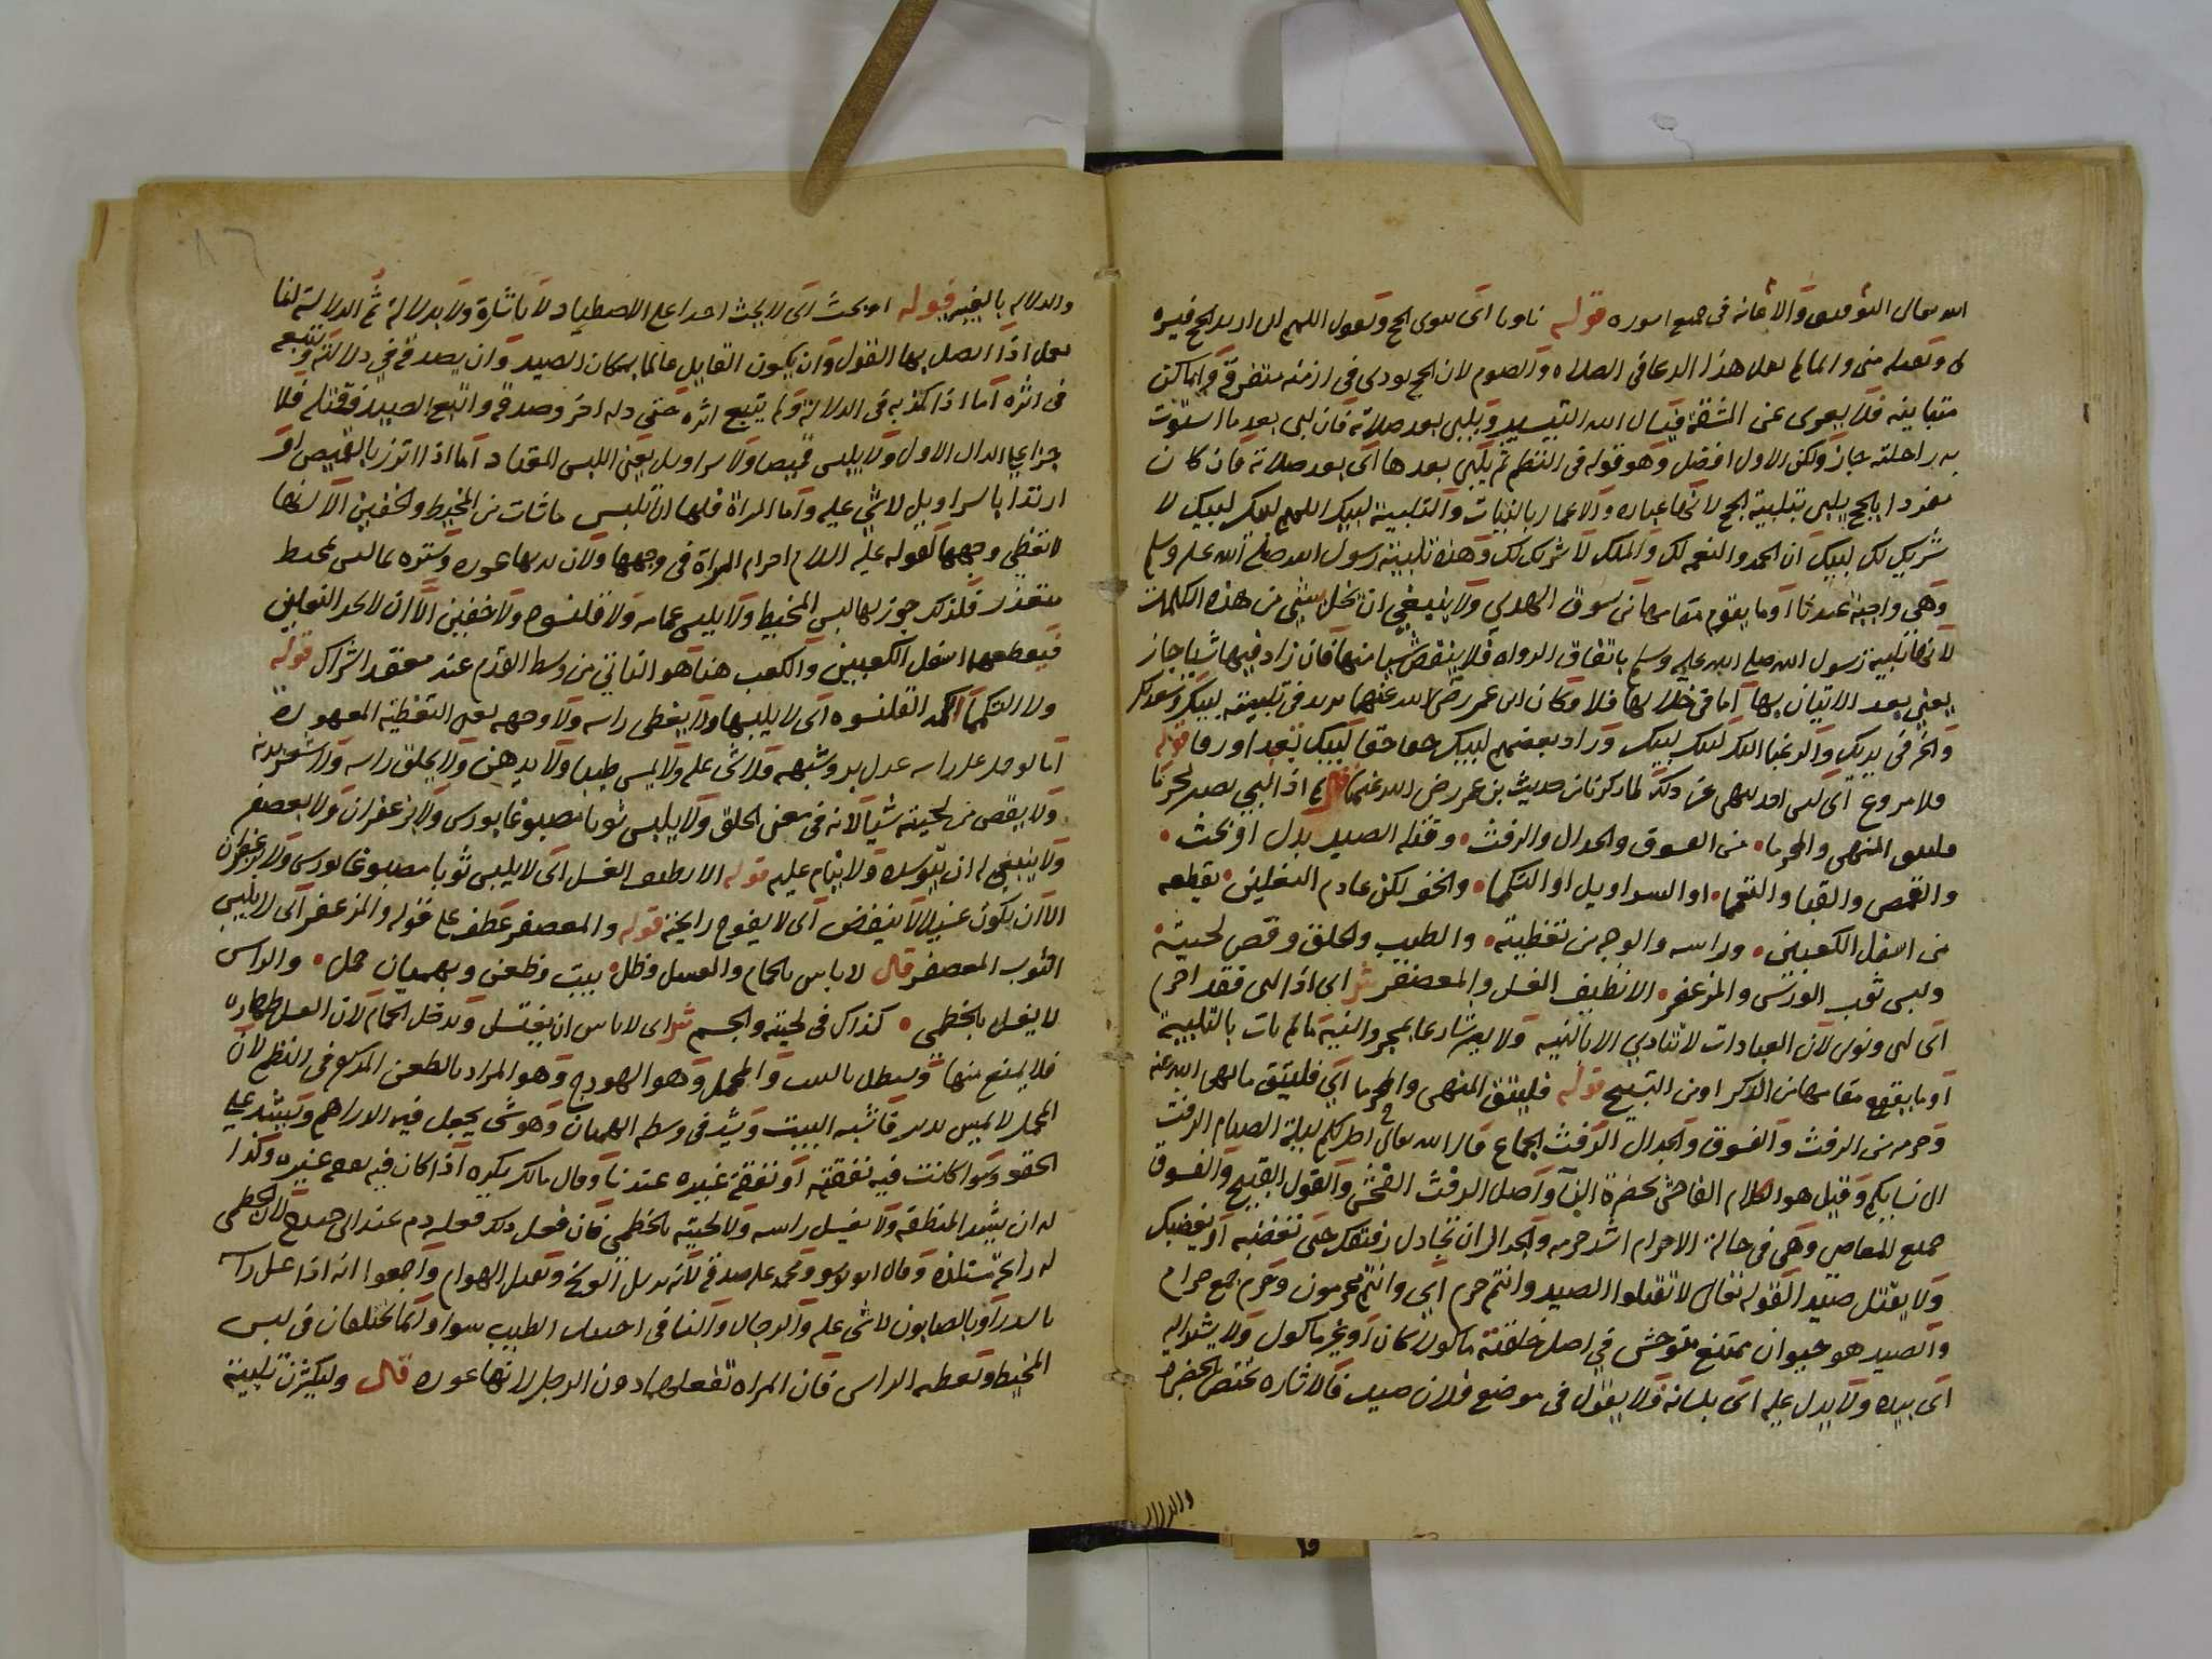 الله تعالى التوفيق والاعانة في جميع اموره قوله ناويا اي ينوي الحج ويقول اللهم اني اريد الحج فيسره
لي وتقبله مني وانما لم يقل هذا الدعا في الصلاه والصوم لان الحج يودي في ازمنه متفرقة واماكن
متباينه فلا يعري عن المشقة فيسال الله التيسير ويلبي بعد صلاته فان لبى بعد ما استوت
به راحلته جاز ولكن الاول افضل وهو قوله في النظم ثم يلبي بعدها اي بعد صلاته فان كان
مفردا بالحج يلبي بتلبية الحج لانها عباده والاعمال بالنيات والتلبية لبيك اللهم لبيك لبيك لا
شريك لك لبيك ان الحمد والنعمه لك والملك لا شريك لك وهذه تلبية رسول الله صلى الله عليه وسلم
وهي واجبة عندنا او ما يقوم مقامها من سوق الهدي ولا ينبغي ان يخل بشي من هذه الكلمات
لانها تلبية رسول الله صلى الله عليه وسلم باتفاق الرواه فلا ينقص شيا منها فان زاد فيها شيا جاز
يعني بعد الاتيان بها اما في خلالها فلا وكان ابن عمر رضي الله عنهما يزيد في تلبيته لبيك وسعديك
والخير في يديك والرغبا اليك لبيك لبيك وزاد بعضهم لبيك حقا حقا لبيك تعبدا ورقا قوله
ولا مروع اي لبى لما ذكرنا من حديث بن عمر رضي الله عنهما قال اذا لبى يصير محرما
فليتق المنهي والمحرما • من الفسوق والجدال والرفث • وقتله الصيد يدل او بحث •
والقمص والقبا والتعمما • او السراويل او التكمما • والخف لكن عادم النعلين • يقطعه
من اسفل الكعبين • وراسه والوجه من تغطيته • والطيب والحلق وقص لحيته •
ولبس ثوب الورس والمزعفر • الا نظيف الغسل والمعصفر ش اي اذا لبى فقد احرم
اي لبى ونوى لان العبادات لا تتادي الا بالنيه ولا يصير شارعا بمجرد النية ما لم يات بالتلبية
او ما يقوم مقامها من الذكر او من التسبيح قوله فليتق المنهي والمحرما اي فليتق ما نهى الله عنه
وحرمه من الرفث والفسوق والجدال الرفث الجماع قال الله تعالى احل لكم ليلة الصيام الرفث
الى نسايكم وقيل هو الكلام الفاحش بحضرة النسا واصل الرفث الفحش والقول القبيح والفسوق
جميع المعاصي وهي في حالة الاحرام اشد حرمه والجدال ان تجادل رفيقك حتى تغضبه او يغضبك
ولا يقتل صيدا لقوله تعالى لا تقتلوا الصيد وانتم حرم اي وانتم محرمون وحرم جمع حرام
والصيد هو حيوان ممتنع متوحش في اصل خلقته ماكولا كان او غير ماكول ولا يشير اليه
اي بيده ولا يدل عليه اي بلسانه ولا يقول في موضع فلان صيد فالاشاره تختص بالحضره
والدلاله
والدلاله بالغيبه قوله او بحث اي لا يحث احدا على الاصطياد لا باشارة ولا بدلالة ثم الدلالة انما
تعمل اذا اتصل بها القتل وان يكون القاتل عالما بمكان الصيد وان يصدقه في دلالته ويتبع
في اثره اما اذا كذبه في الدلالة ولم يتبع اثره حتى دله اخر وصدقه واتبع الصيد فقتله فلا
جزا على الدال الاول ولا يلبس قميصا ولا سراويل يعني اللبس المعتاد اما اذا اتزر بالقميص او
ارتدا بالسراويل لا شي عليه واما المراة فلها ان تلبس ما شات من المخيط والخفين الا انها
لا تغطي وجهها لقوله عليه السلام احرام المراة في وجهها ولان بدنها عوره وستره بما ليس بمخيط
متعذر فلذلك جوز لها لبس المخيط ولا يلبس عمامه ولا قلنسوه ولا خفين الا ان لا يجد النعلين
فيقطعهما اسفل الكعبين والكعب هنا هو الناتي من وسط القدم عند معقد الشراك قوله
ولا التكمما القلنسوه اي لا يلبسها ولا يغطي راسه ولا وجهه يعني التغطيه المعهوده
اما لو حمل على راسه عدل بر وشبهه فلا شي عليه ولا يمس طيبا ولا يدهن ولا يحلق راسه ولا شعر بدنه
ولا يقص من لحيته شيا لانه في معنى الحلق ولا يلبس ثوبا مصبوغا بورس ولا زعفران ولا بعصفر
ولا ينبغي له ان يتوسده ولا ينام عليه قوله الا نظيف الغسل اي لا يلبس ثوبا مصبوغا بورس ولا زعفران
الا ان يكون غسيلا لا ينفض اي لا يفوح رايحته قوله والمعصفر عطف على قوله والمزعفر اي لا يلبس
الثوب المعصفر قال لا باس بالحمام والغسل وظل • بيت وظعن وبهميان حمل • والراس
لا يغسل بالخطمي • كذاك في لحيته والجسم ش اي لا باس ان يغتسل ويدخل الحمام لان الغسل طهاره
فلا يمنع منها ويستظل بالبيت والمحمل وهو الهودج وهو المراد بالظعن المذكور في النظم لان
المحمل لا يمس بدنه فاشبه البيت ويشد في وسطه الهميان وهو شي يجعل فيه الدراهم ويشد على
الحقو وسوا كانت فيه نفقته او نفقة غيره عندنا وقال مالك يكره اذا كان فيه نفقه غيره وكذا
له ان يشد المنطقه ولا يغسل راسه ولا لحيته بالخطمي فان فعل ذلك فعليه دم عند ابي حنيفة لان الخطمي
له رايحة مستلذه وقال ابو يوسف ومحمد عليه صدقة لانه يزيل الوسخ ويقتل الهوام واجمعوا انه اذا غسل راسه
بالسدر او بالصابون لا شي عليه والرجال والنسا في اجتناب الطيب سوا وانما يختلفان في لبس
المخيط وتغطيه الراس فان المراه تفعلهما دون الرجل لانها عوره قال وليكثرن تلبية